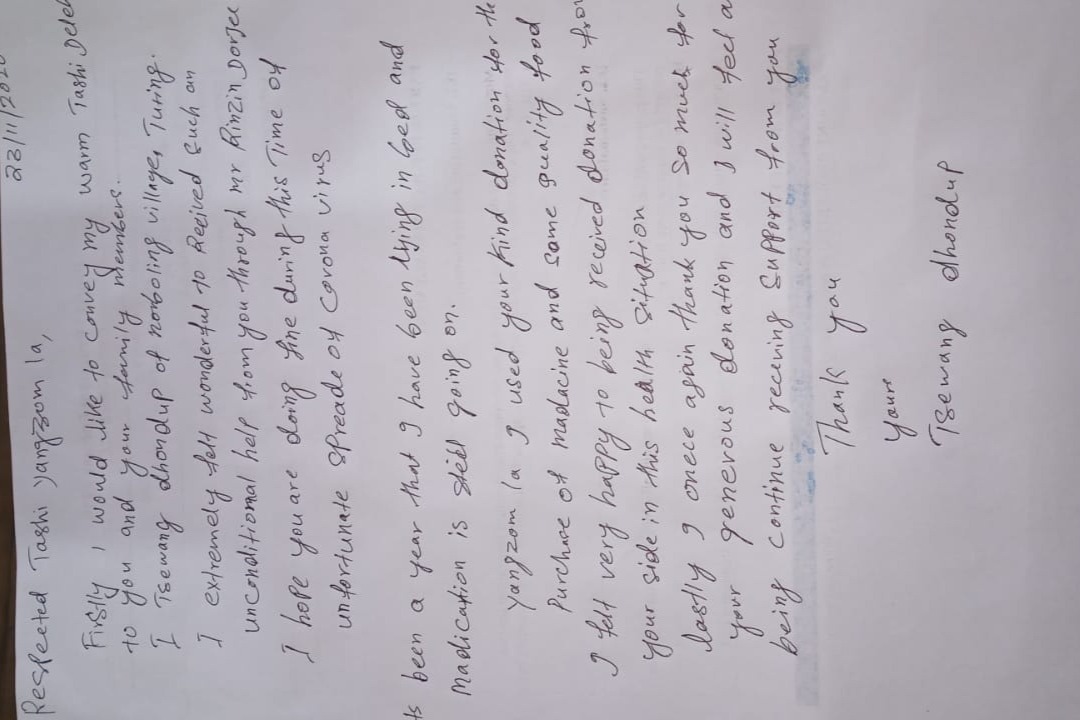 23/11/2020
Respected Tashi yangzom la,
Firstly i would like to convey my warm Tashi Delek
to you and your family members.
I Tsewang dhondup of norboling village, Tuting.
I extremely felt wonderful to Recived such an
unconditional help from you through mr Rinzin Dorjee
I hope you are doing fine during this Time of
unfortunate spreade of corona virus
ts been a year that I have been lying in bed and
madication is still going on.
yangzom la I used your kind donation for the
Purchase of madacine and some quality food
I felt very happy to being received donation from
your side in this health situation
lastly I onece again thank you so much for
your generous donation and I will feel a
being continue receving support from you
Thank you
your
Tsewang dhondup